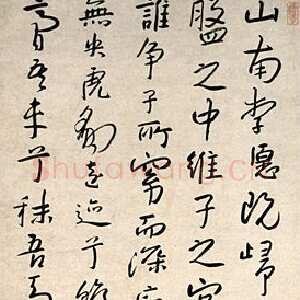 山南李愿既歸
盤之中維子之宮
誰争子所窈而深
無央虎豹遠迹兮
膏吾車兮秣吾馬
Shufawang.cn